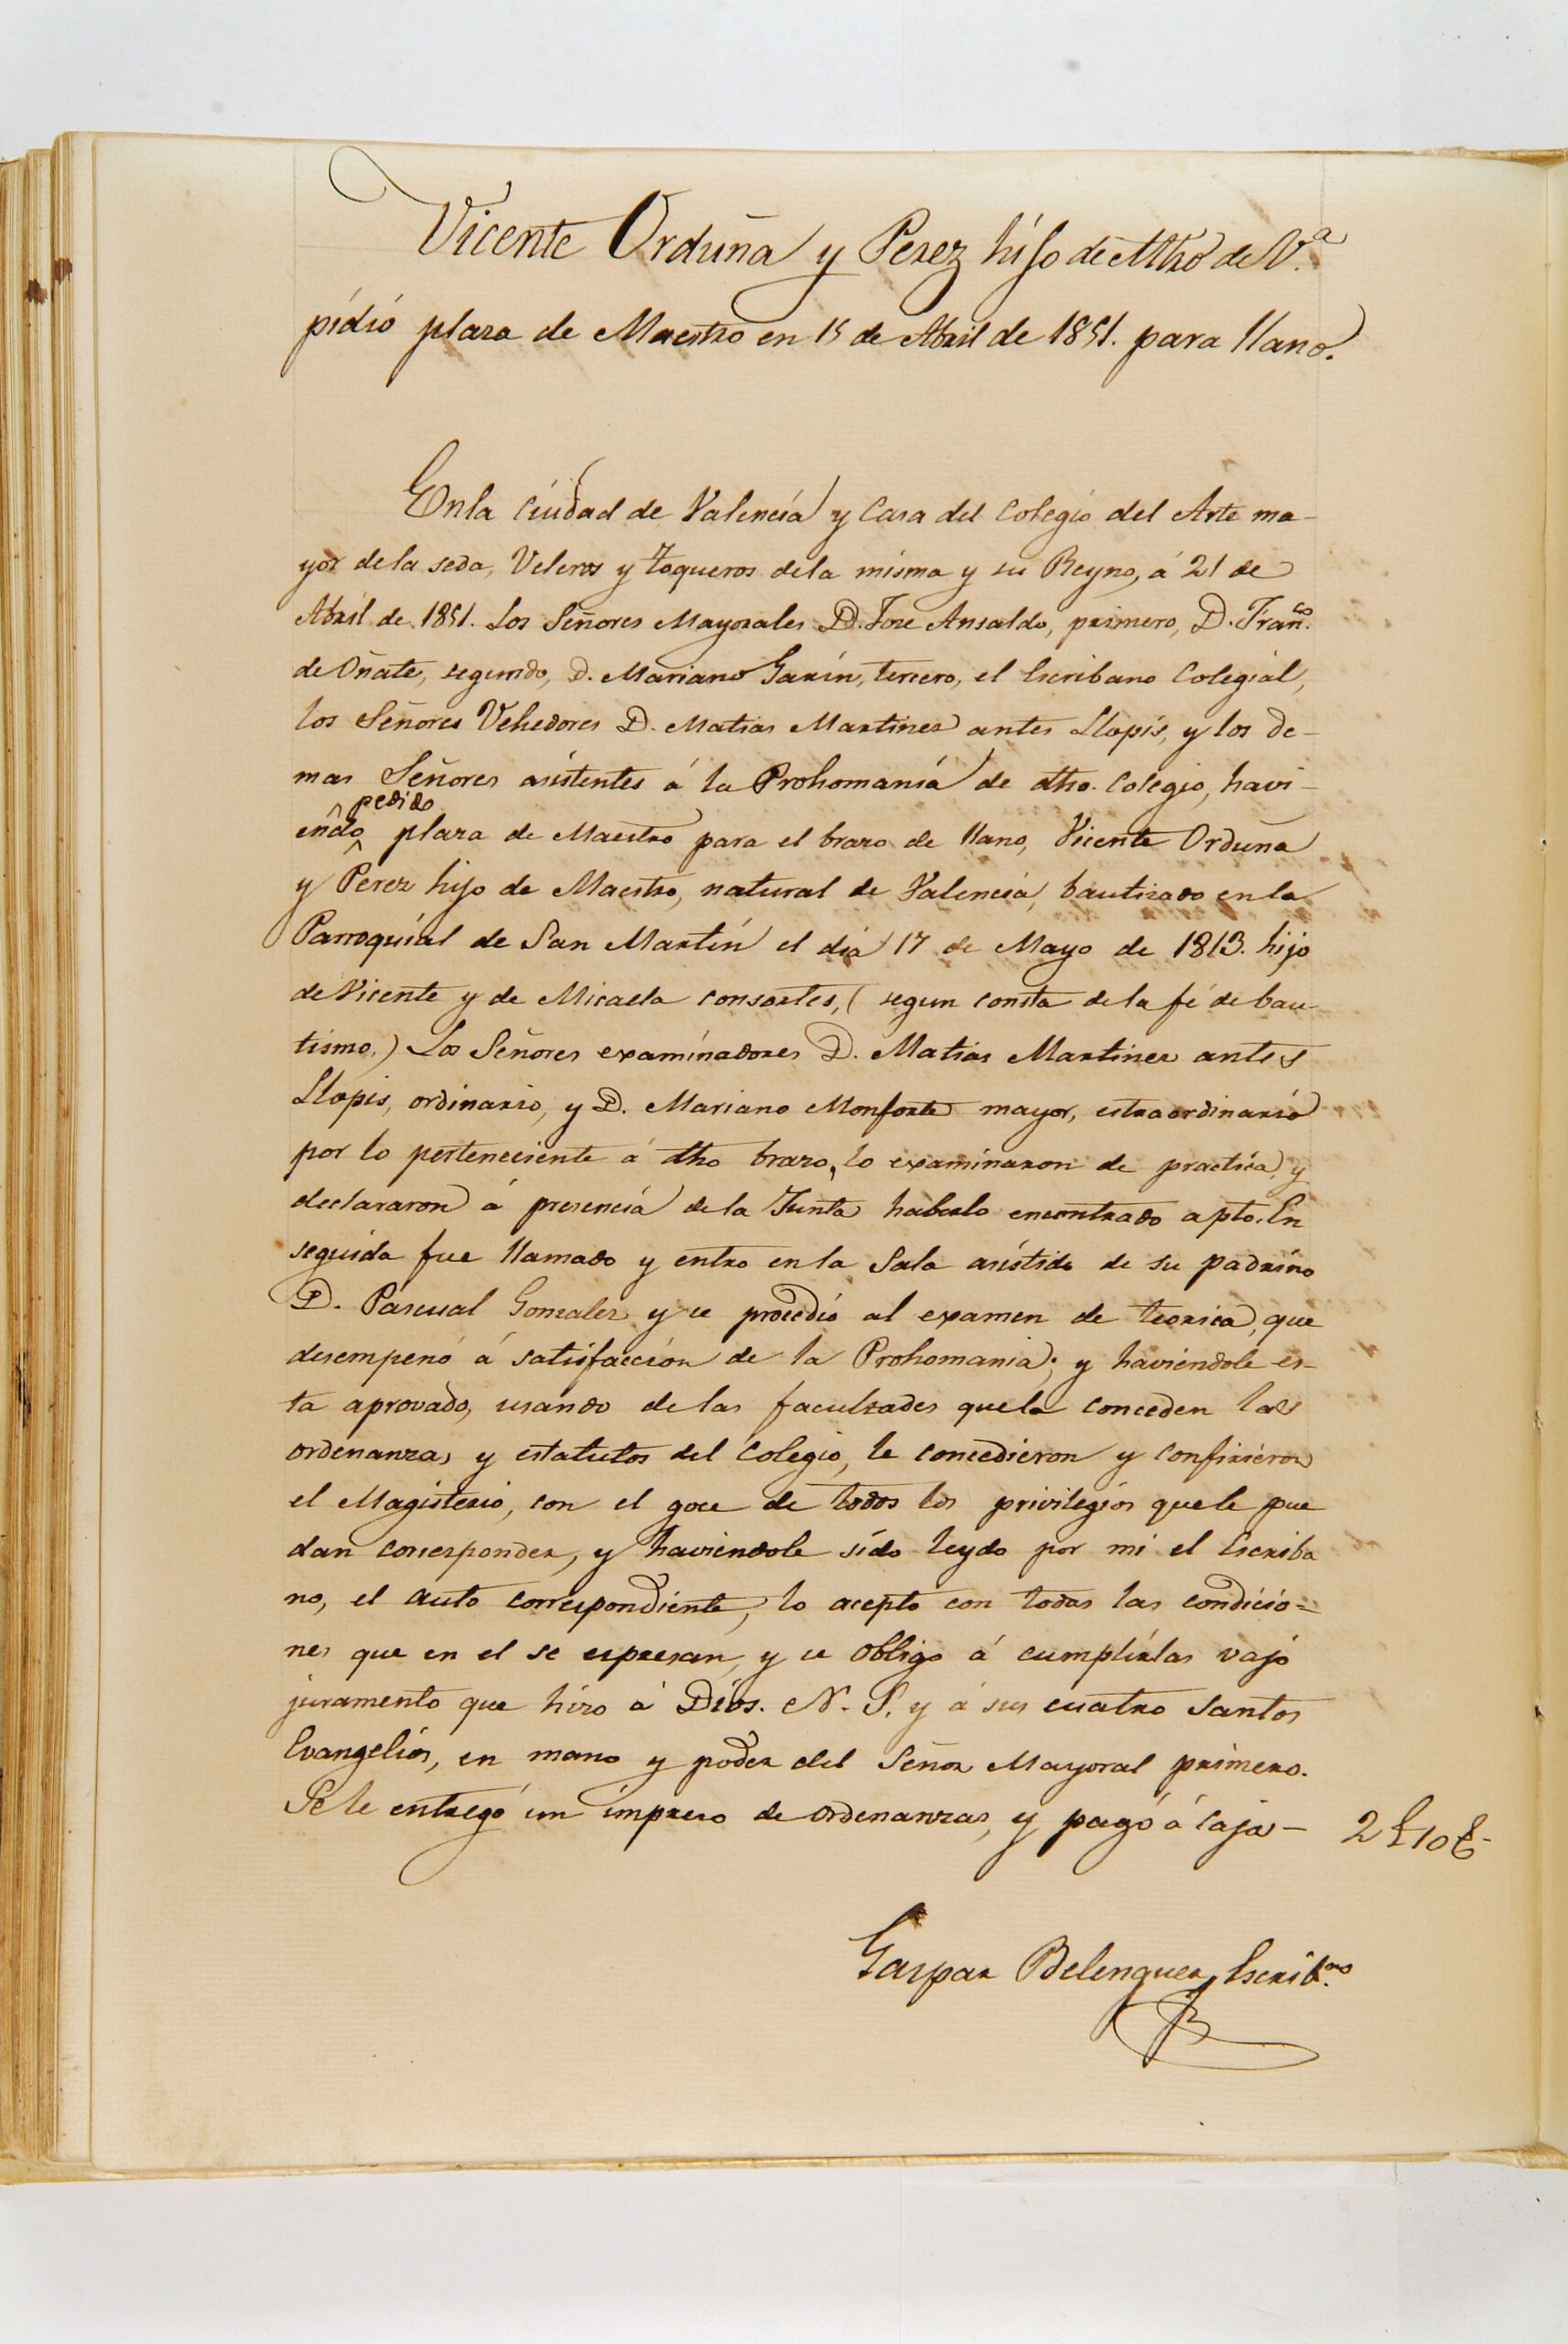 Vicente Orduña y Perez hijo de Mtro de V.ª
pidió plaza de Maestro en 15 de Abril de 1851. para llano.
En la Ciudad de Valencia y Casa del Colegio del Arte ma-
yor de la seda, Veleros y toqueros de la misma y su Reyno, á 21 de
Abril de 1851. Los Señores Mayorales D. Jose Ansaldo, primero, D. Fran.co
de Oñate, segundo, D. Mariano Garin, tercero, el Escribano Colegial,
los Señores Vehedores D. Matias Martinez antes Llopis, y los de-
mas Señores asistentes á la Prohomania de dho. Colegio, havi-
endo pedido plaza de Maestro para el brazo de llano, Vicente Orduña
y Perez hijo de Maestro, natural de Valencia, bautizado en la
Parroquial de San Martin el dia 17 de Mayo de 1813. hijo
de Vicente y de Micaela consortes, (segun consta de la fé de bau-
tismo.) Los Señores examinadores D. Matias Martinez antes
Llopis, ordinario, y D. Mariano Monforte mayor, estraordinario
por lo perteneciente á dho brazo, lo examinaron de practica, y
declararon á presencia de la Junta haberlo encontrado apto. En
seguida fue llamado y entro en la Sala asistido de su padrino
D. Pascual Gonzalez y se procedio al examen de teorica, que
desempeñó á satisfaccion de la Prohomania; y haviendole es-
ta aprovado, usando de las facultades que la conceden las
ordenanzas y estatutos del Colegio, le concedieron y confirieron
el Magisterio, con el goce de todos los privilegios que le pue
dan corresponder, y haviendole sido leydo por mi el Escriba
no, el auto correspondiente, lo acepto con todas las condicio=
nes que en el se espresan, y se obligo á cumplirlas vajo
juramento que hizo á Dios. N. S. y á sus cuatro Santos
Evangelios, en mano y poder del Señor Mayoral primero.
Se le entregó un impreso de ordenanzas, y pagó á Caja- 2 £ 10 §-
Gaspar Belenguer, Escrib.no